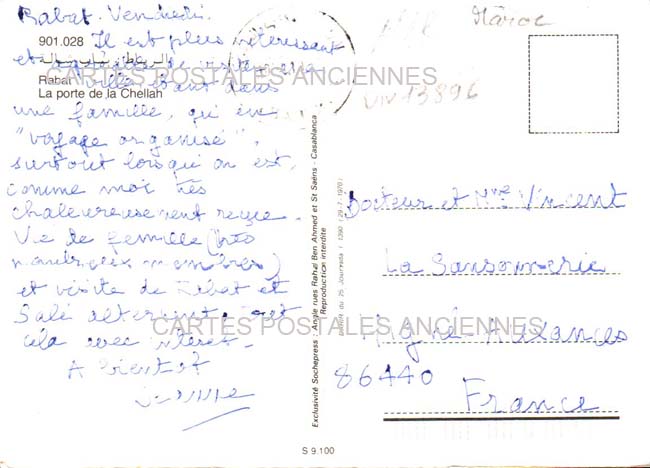 Rabat. Vendredi.
Il est plus intéressant
et
ville étant dans
une famille, qu'en
"voyage organisé",
surtout lorsqu'on est,
comme moi très
chaleureusement reçue.
Vie de famille (très
nombreux membres)
et visite de Rabat et
Salé alternent. Tout
cela avec intérêt.
A bientôt
901.028
الرباط - باب شالة
Rabat
La porte de la Chellah
CARTES POSTALES ANCIENNES
CARTES POSTALES ANCIENNES
Exclusivité Sochepress - Angle rues Rahal Ben Ahmed et St Saëns - Casablanca
Reproduction interdite
S 9.100
Maroc
VIV 13896
Docteur et Mme Vincent
La Sansonnerie
Migné Auxances
86440
France